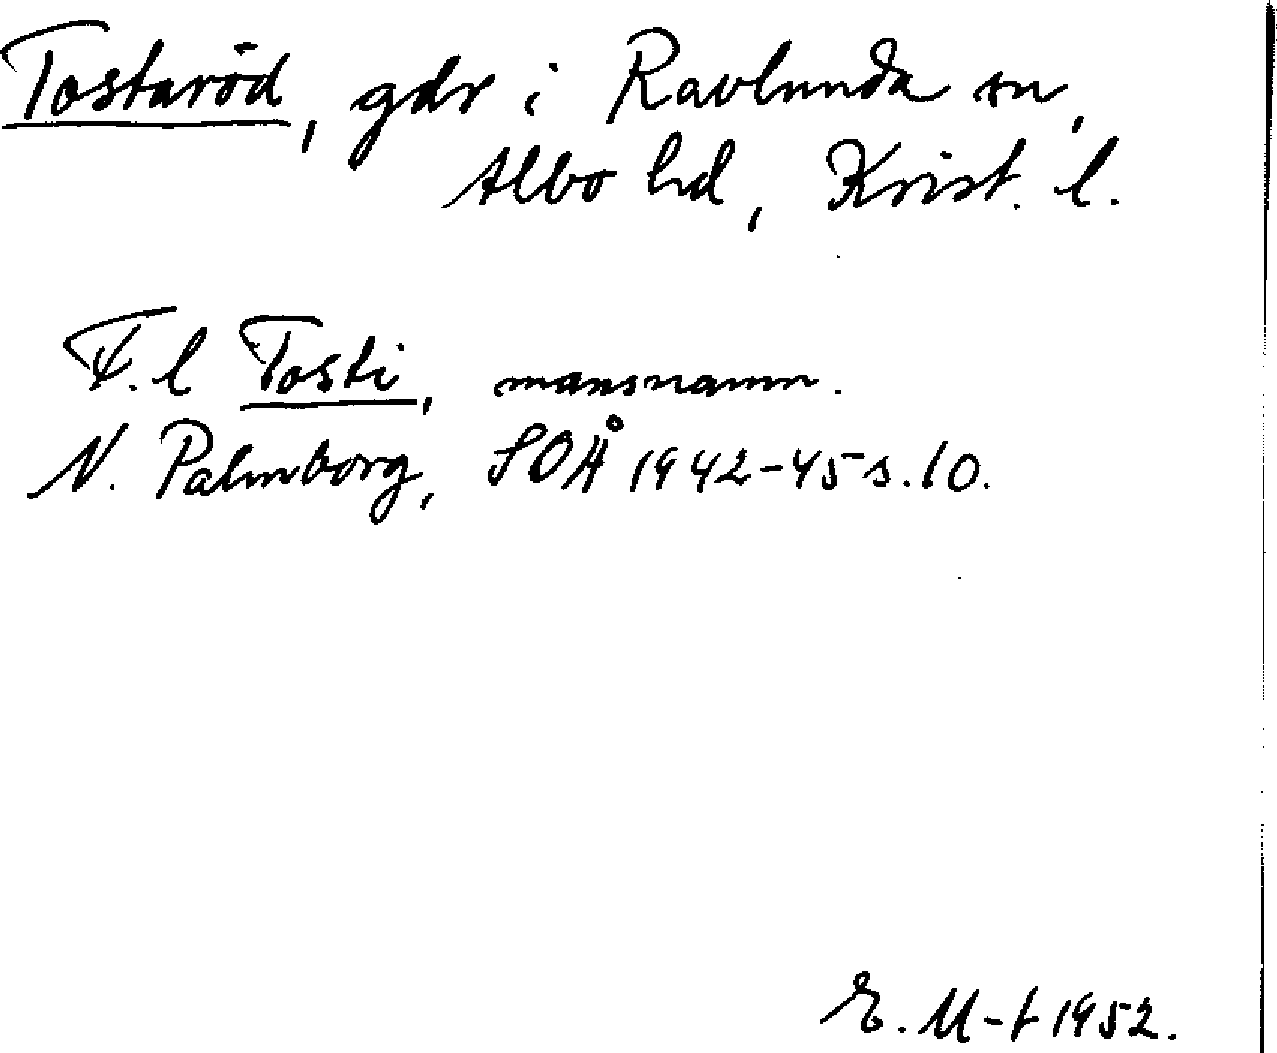 Tostaröd, gdr i Ravlunda sn,
Albo hd, Krist. l.
F. l Tosti, mansnamn.
N. Palmborg, SOÅ 1942-45 s. 10.
E. M-t 1952.